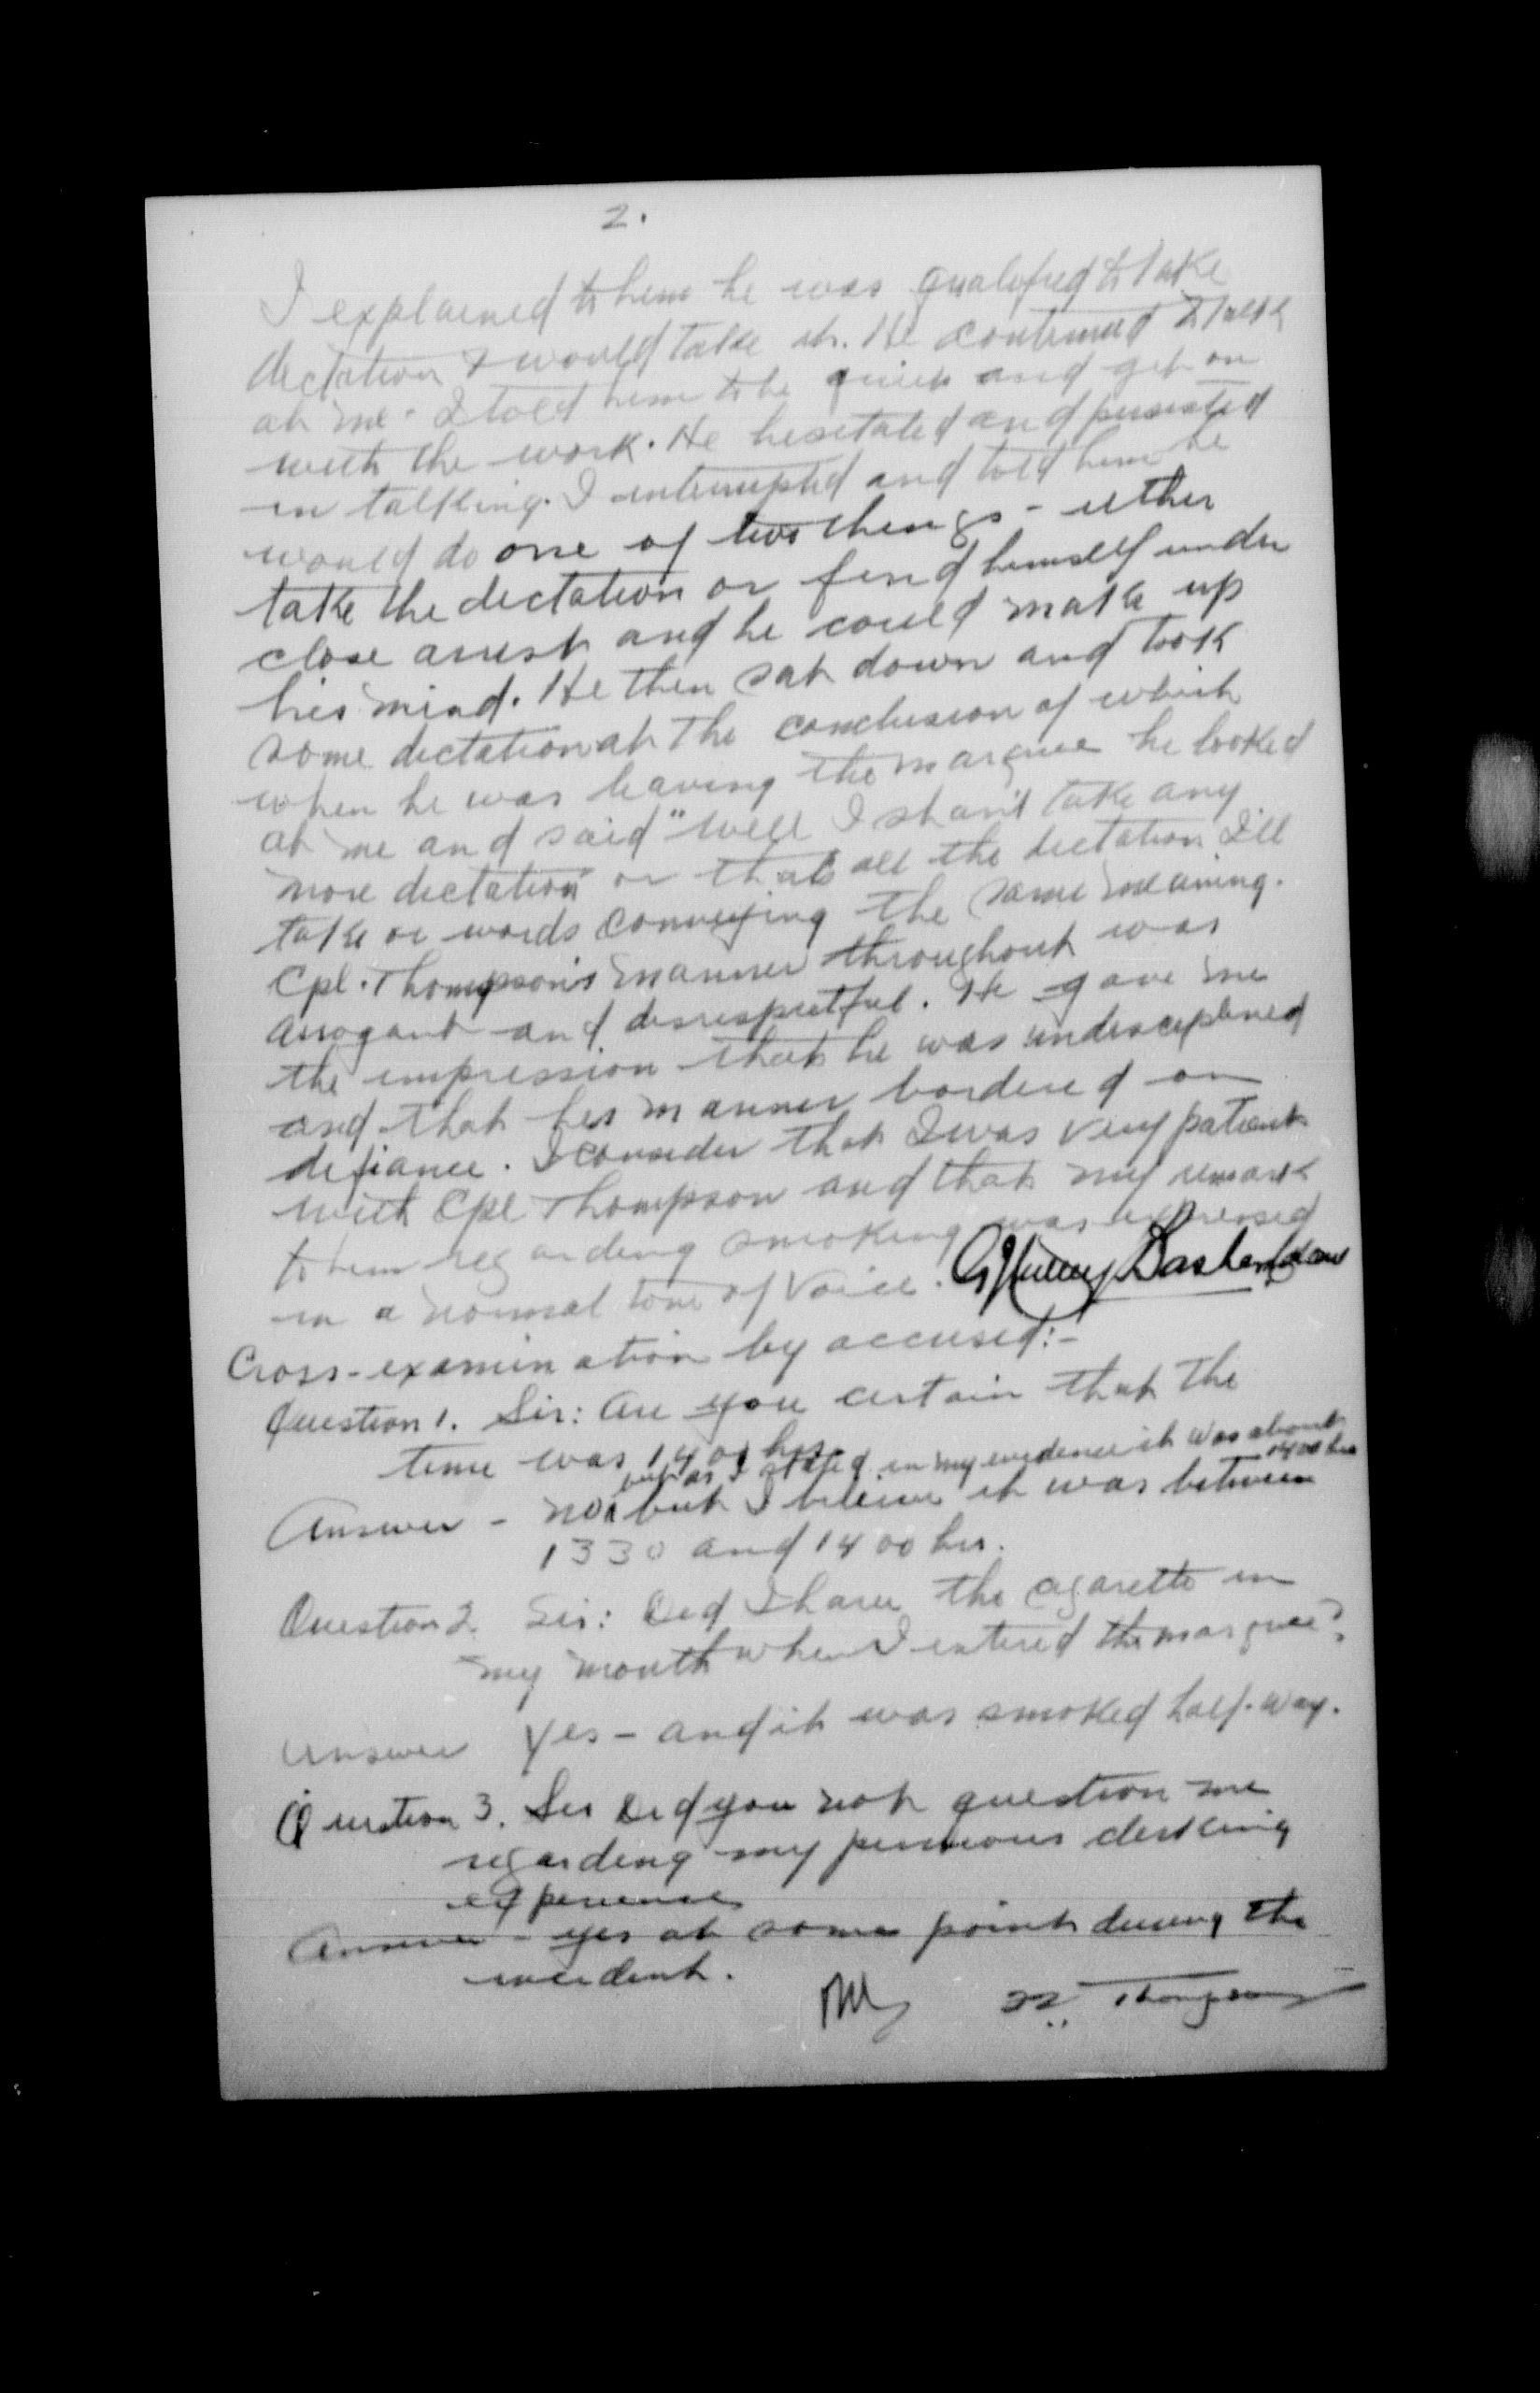 2.
I explained to him he was qualified to take
dictation & would take it. He continued to talk
at me. I told him to be quiet and get on
with the work. He hesitated and persisted
in talking. I interrupted and told him he
would do one of two things - either
take the dictation or find himself under
close arrest and he could make up
his mind. He then sat down and took
some dictation at the conclusion of which
when he was leaving the marquee he looked
at me and said "Well I shan't take any
more dictation" or that's all the dictation I'll
take or words conveying the same meaning.
Cpl. Thompson's manner throughout was
arrogant and disrespectful. He gave me
the impression that he was undisciplined
and that his manner bordered on
defiance. I consider that I was very patient
with Cpl Thompson and that my remark
to him regarding smoking was expressed
in a normal tone of voice.
Cross-examination by accused:-
Question 1. Sir: Are you certain that the
time was 1400 hrs.
but as I stated in my evidence it was about 1400 hrs
Answer - No but I believe it was between
1330 and 1400 hrs.
Question 2. Sir: Did I have the cigarette in
my mouth when I entered the marquee?
Answer Yes - and it was smoked half-way.
Question 3. Sir Did you not question me
regarding my previous clerking
experience
Answer - Yes at some point during the
incident.
Thompson